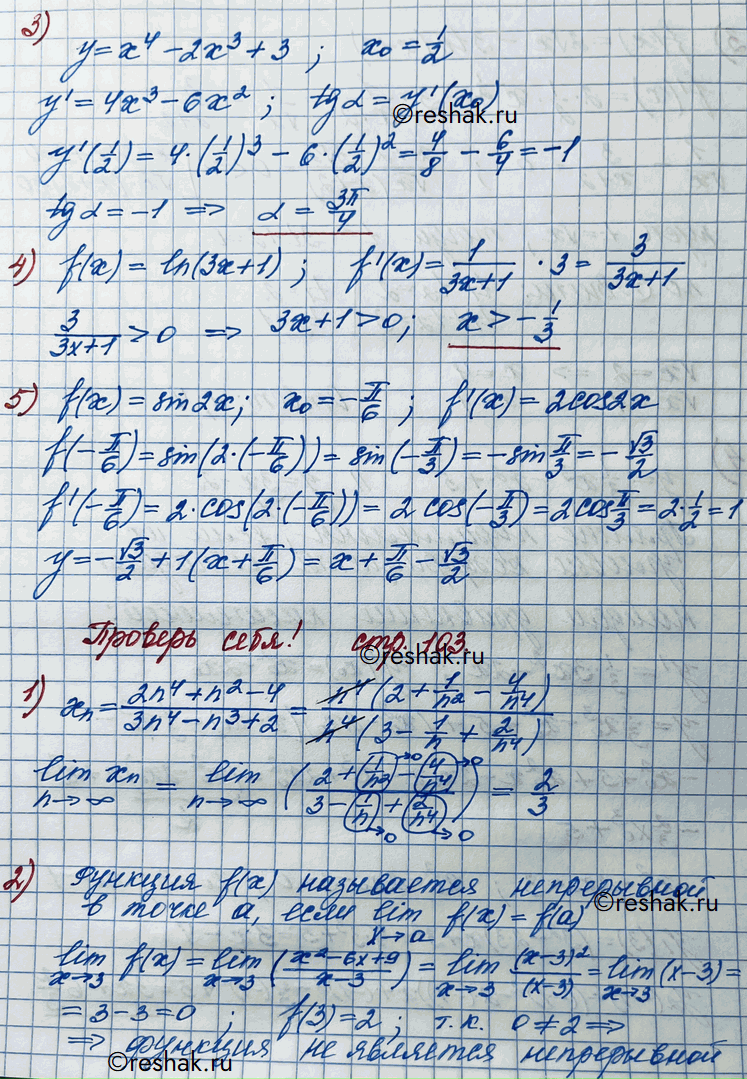 3) y = x⁴ - 2x³ + 3 ; x₀ = 1/2
y' = 4x³ - 6x² ; tg α = y'(x₀)
©reshak.ru
y'(1/2) = 4·(1/2)³ - 6·(1/2)² = 4/8 - 6/4 = -1
tg α = -1 => α = 3π/4
4) f(x) = ln(3x+1) ; f'(x) = 1/(3x+1) · 3 = 3/(3x+1)
3/(3x+1) > 0 => 3x+1 > 0 ; x > -1/3
5) f(x) = sin2x ; x₀ = -π/6 ; f'(x) = 2cos2x
f(-π/6) = sin(2·(-π/6)) = sin(-π/3) = -sin π/3 = -√3/2
f'(-π/6) = 2·cos(2·(-π/6)) = 2 cos(-π/3) = 2cos π/3 = 2·1/2 = 1
y = -√3/2 + 1(x + π/6) = x + π/6 - √3/2
Проверь себя! стр. 103
©reshak.ru
1) xₙ = (2n⁴ + n² - 4)/(3n⁴ - n³ + 2) = n⁴(2 + 1/n² - 4/n⁴)/n⁴(3 - 1/n + 2/n⁴)
lim n→∞ xₙ = lim n→∞ ((2 + 1/n² →0 - 4/n⁴ →0)/(3 - 1/n →0 + 2/n⁴ →0)) = 2/3
2) Функция f(x) называется непрерывной
©reshak.ru
в точке a, если lim x→a f(x) = f(a)
lim x→3 f(x) = lim x→3 ((x² - 6x + 9)/(x-3)) = lim x→3 (x-3)²/(x-3) = lim x→3 (x-3) =
= 3 - 3 = 0 ; f(3) = 2 ; т.к. 0 ≠ 2 =>
=> функция не является непрерывной
©reshak.ru